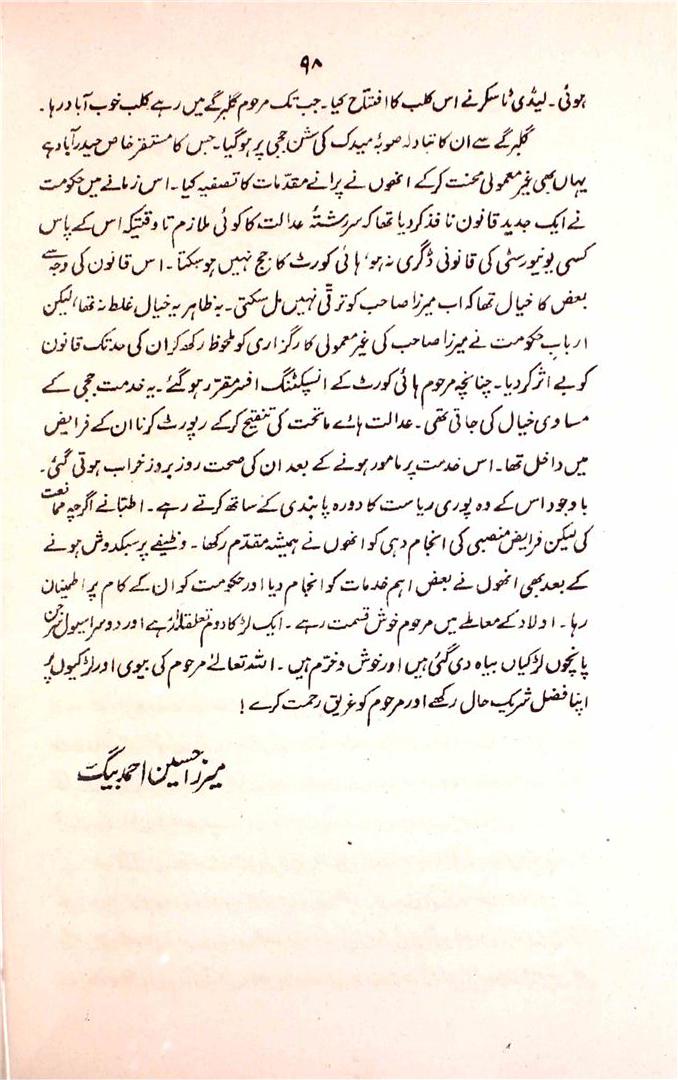 ۹۸
ہوئی ۔ لیڈی ٹاسکر نے اس کلب کا افتتاح کیا ۔ جب تک مرحوم گلبرگے میں رہے کلب خوب آباد رہا ۔
گلبرگے سے ان کا تبادلہ صوبۂ میدک کی شن ججی پر ہوگیا ۔ جس کا مستقر خاص حیدرآباد ہے
یہاں بھی غیر معمولی محنت کرکے انھوں نے پرانے مقدمات کا تصفیہ کیا ۔ اس زمانے میں حکومت
نے ایک جدید قانون نافذ کردیا تھا کہ سررشتۂ عدالت کا کوئی ملازم تا وقتیکہ اس کے پاس
کسی یونیورسٹی کی قانونی ڈگری نہ ہو، ہائی کورٹ کا جج نہیں ہوسکتا ۔ اس قانون کی وجہ سے
بعض کا خیال تھا کہ اب میرزا صاحب کو ترقی نہیں مل سکتی ۔ بہ ظاہر یہ خیال غلط نہ تھا، لیکن
ارباب حکومت نے میرزا صاحب کی غیر معمولی کارگزاری کو ملحوظ رکھ کر ان کی حد تک قانون
کو بے اثر کردیا ۔ چنانچہ مرحوم ہائی کورٹ کے انسپکٹنگ افسر مقرر ہوگئے ۔ یہ خدمت ججی کے
مساوی خیال کی جاتی تھی ۔ عدالت ہائے ماتحت کی تنقیح کرکے رپورٹ کرنا ان کے فرایض
میں داخل تھا ۔ اس خدمت پر مامور ہونے کے بعد ان کی صحت روز بروز خراب ہوتی گئی ۔
باوجود اس کے وہ پوری ریاست کا دورہ پابندی کے ساتھ کرتے رہے ۔ اطبّا نے اگرچہ ممانعت
کی لیکن فرایض منصبی کی انجام دہی کو انھوں نے ہمیشہ مقدّم رکھا ۔ وظیفے پر سبکدوش ہونے
کے بعد بھی انھوں نے بعض اہم خدمات کو انجام دیا اور حکومت کو ان کے کام پر اطمینان
رہا ۔ اولاد کے معاملے میں مرحوم خوش قسمت رہے ۔ ایک لڑکا دوم تعلقدار ہے اور دوسرا سیول سرجن
پانچوں لڑکیاں بیاہ دی گئی ہیں اور خوش و خرّم ہیں ۔ اللہ تعالےٰ مرحوم کی بیوی اور لڑکیوں پر
اپنا فضل شریک حال رکھے اور مرحوم کو غریق رحمت کرے !
میرزا حسین احمد بیگ